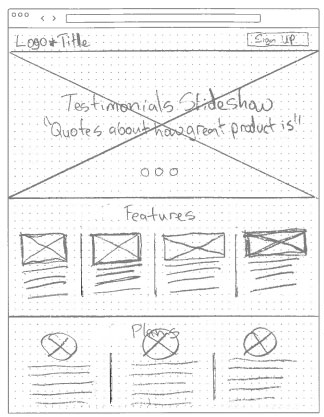 Logo+Title
Sign Up
Testimonials Slideshow
"Quotes about how great product is"
Features
Plans